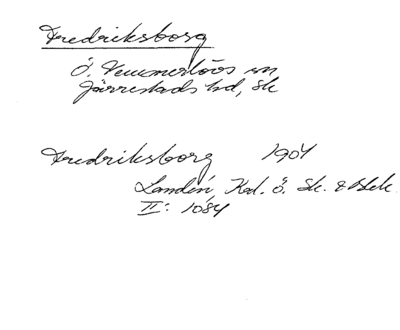 Fredriksborg
Ö. Vemmerlövs sn
Järrestads hd, Sk
Fredriksborg 1904
Landén, Kad. Ö. Sk. & Blek.
II: 1084